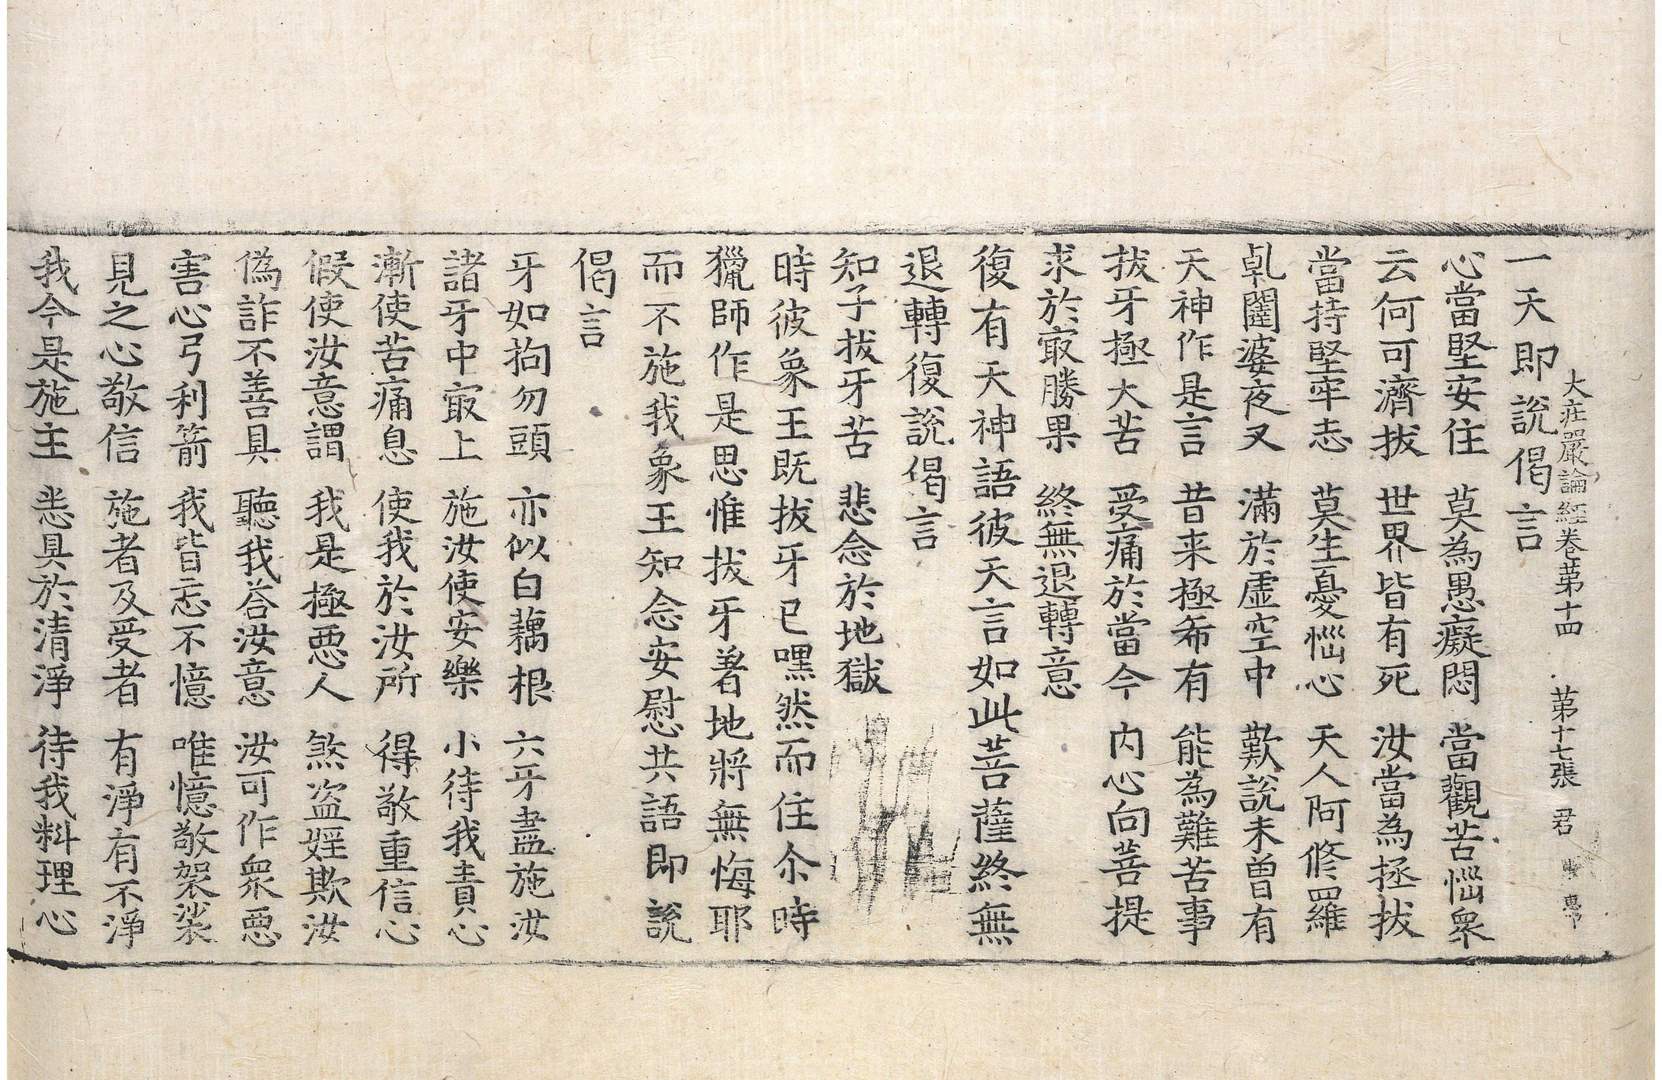 大莊嚴論經卷苐十四 苐十七張 君
一天即說偈言
心當堅安住 莫為愚癡悶 當觀苦惱衆
云何可濟拔 世界皆有死 汝當為拯拔
當持堅牢志 莫生憂惱心 天人阿修羅
乹闥婆夜叉 滿於虛空中 歎說未曾有
天神作是言 昔来極希有 能為難苦事
拔牙極大苦 受痛於當今 内心向菩提
求於㝡勝果 終無退轉意
復有天神語彼天言如此菩薩終無
退轉復說偈言
知子拔牙苦 悲念於地獄
時彼象王既拔牙已嘿然而住尒時
獵師作是思惟拔牙著地將無悔耶
而不施我象王知念安慰共語即說
偈言
牙如拘勿頭 亦似白藕根 六牙盡施汝
諸牙中㝡上 施汝使安樂 小待我責心
漸使苦痛息 使我於汝所 得敬重信心
假使汝意謂 我是極惡人 煞盜婬欺汝
偽詐不善具 聽我荅汝意 汝可作衆惡
害心弓利箭 我皆忘不憶 唯憶敬袈裟
見之心敬信 施者及受者 有淨有不淨
我今是施主 恙具於清淨 待我料理心